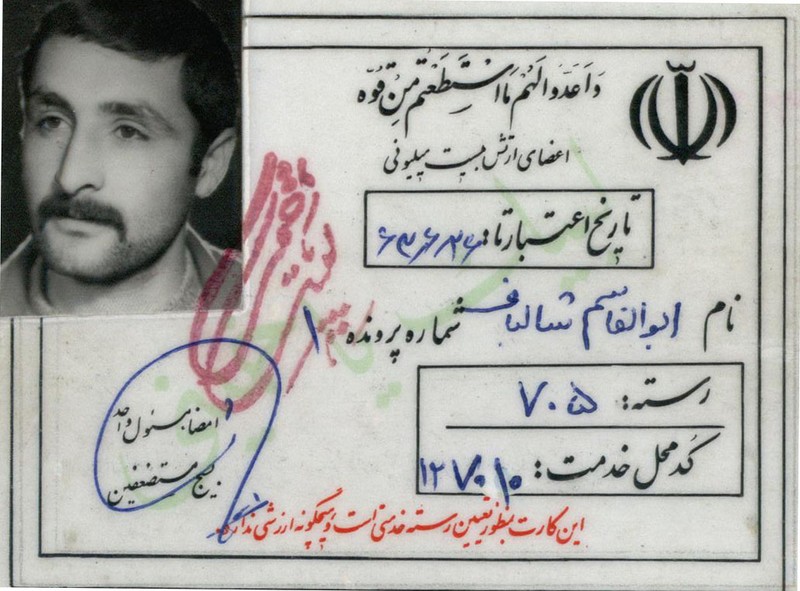 وَاَعِدّوا لَهُم مَا اسْتَطَعْتُم مِنْ قُوَّه
اعضای ارتش بیست میلیونی
تاریخ اعتبار تا: ۶۳/۶/۲۶
نام ابوالقاسم شالباف شماره پرونده ۱
رسته: ۷۰۵
کُد محل خدمت: ۱۲۷۰۱۰
امضا مسئول واحد
بسیج مستضعفین
این کارت بمنظور تعیین رسته خدمتی است و هیچگونه ارزشی ندارد.